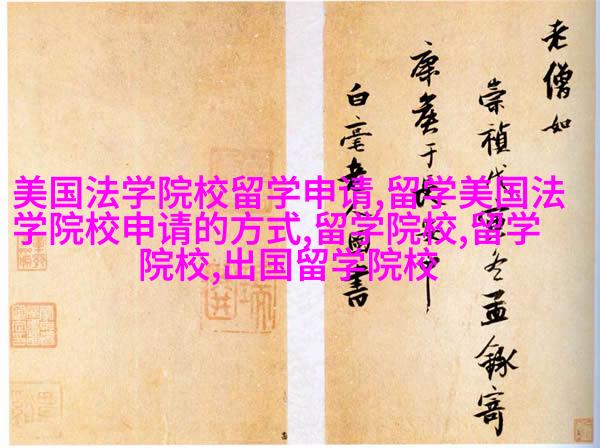 美国法学院校留学申请,留学美国法
学院校申请的方式,留学院校,留学
院校,出国留学院校
老僧如
崇禎戊寅冬孟錄寄
康矦于長
白毫老人圓書